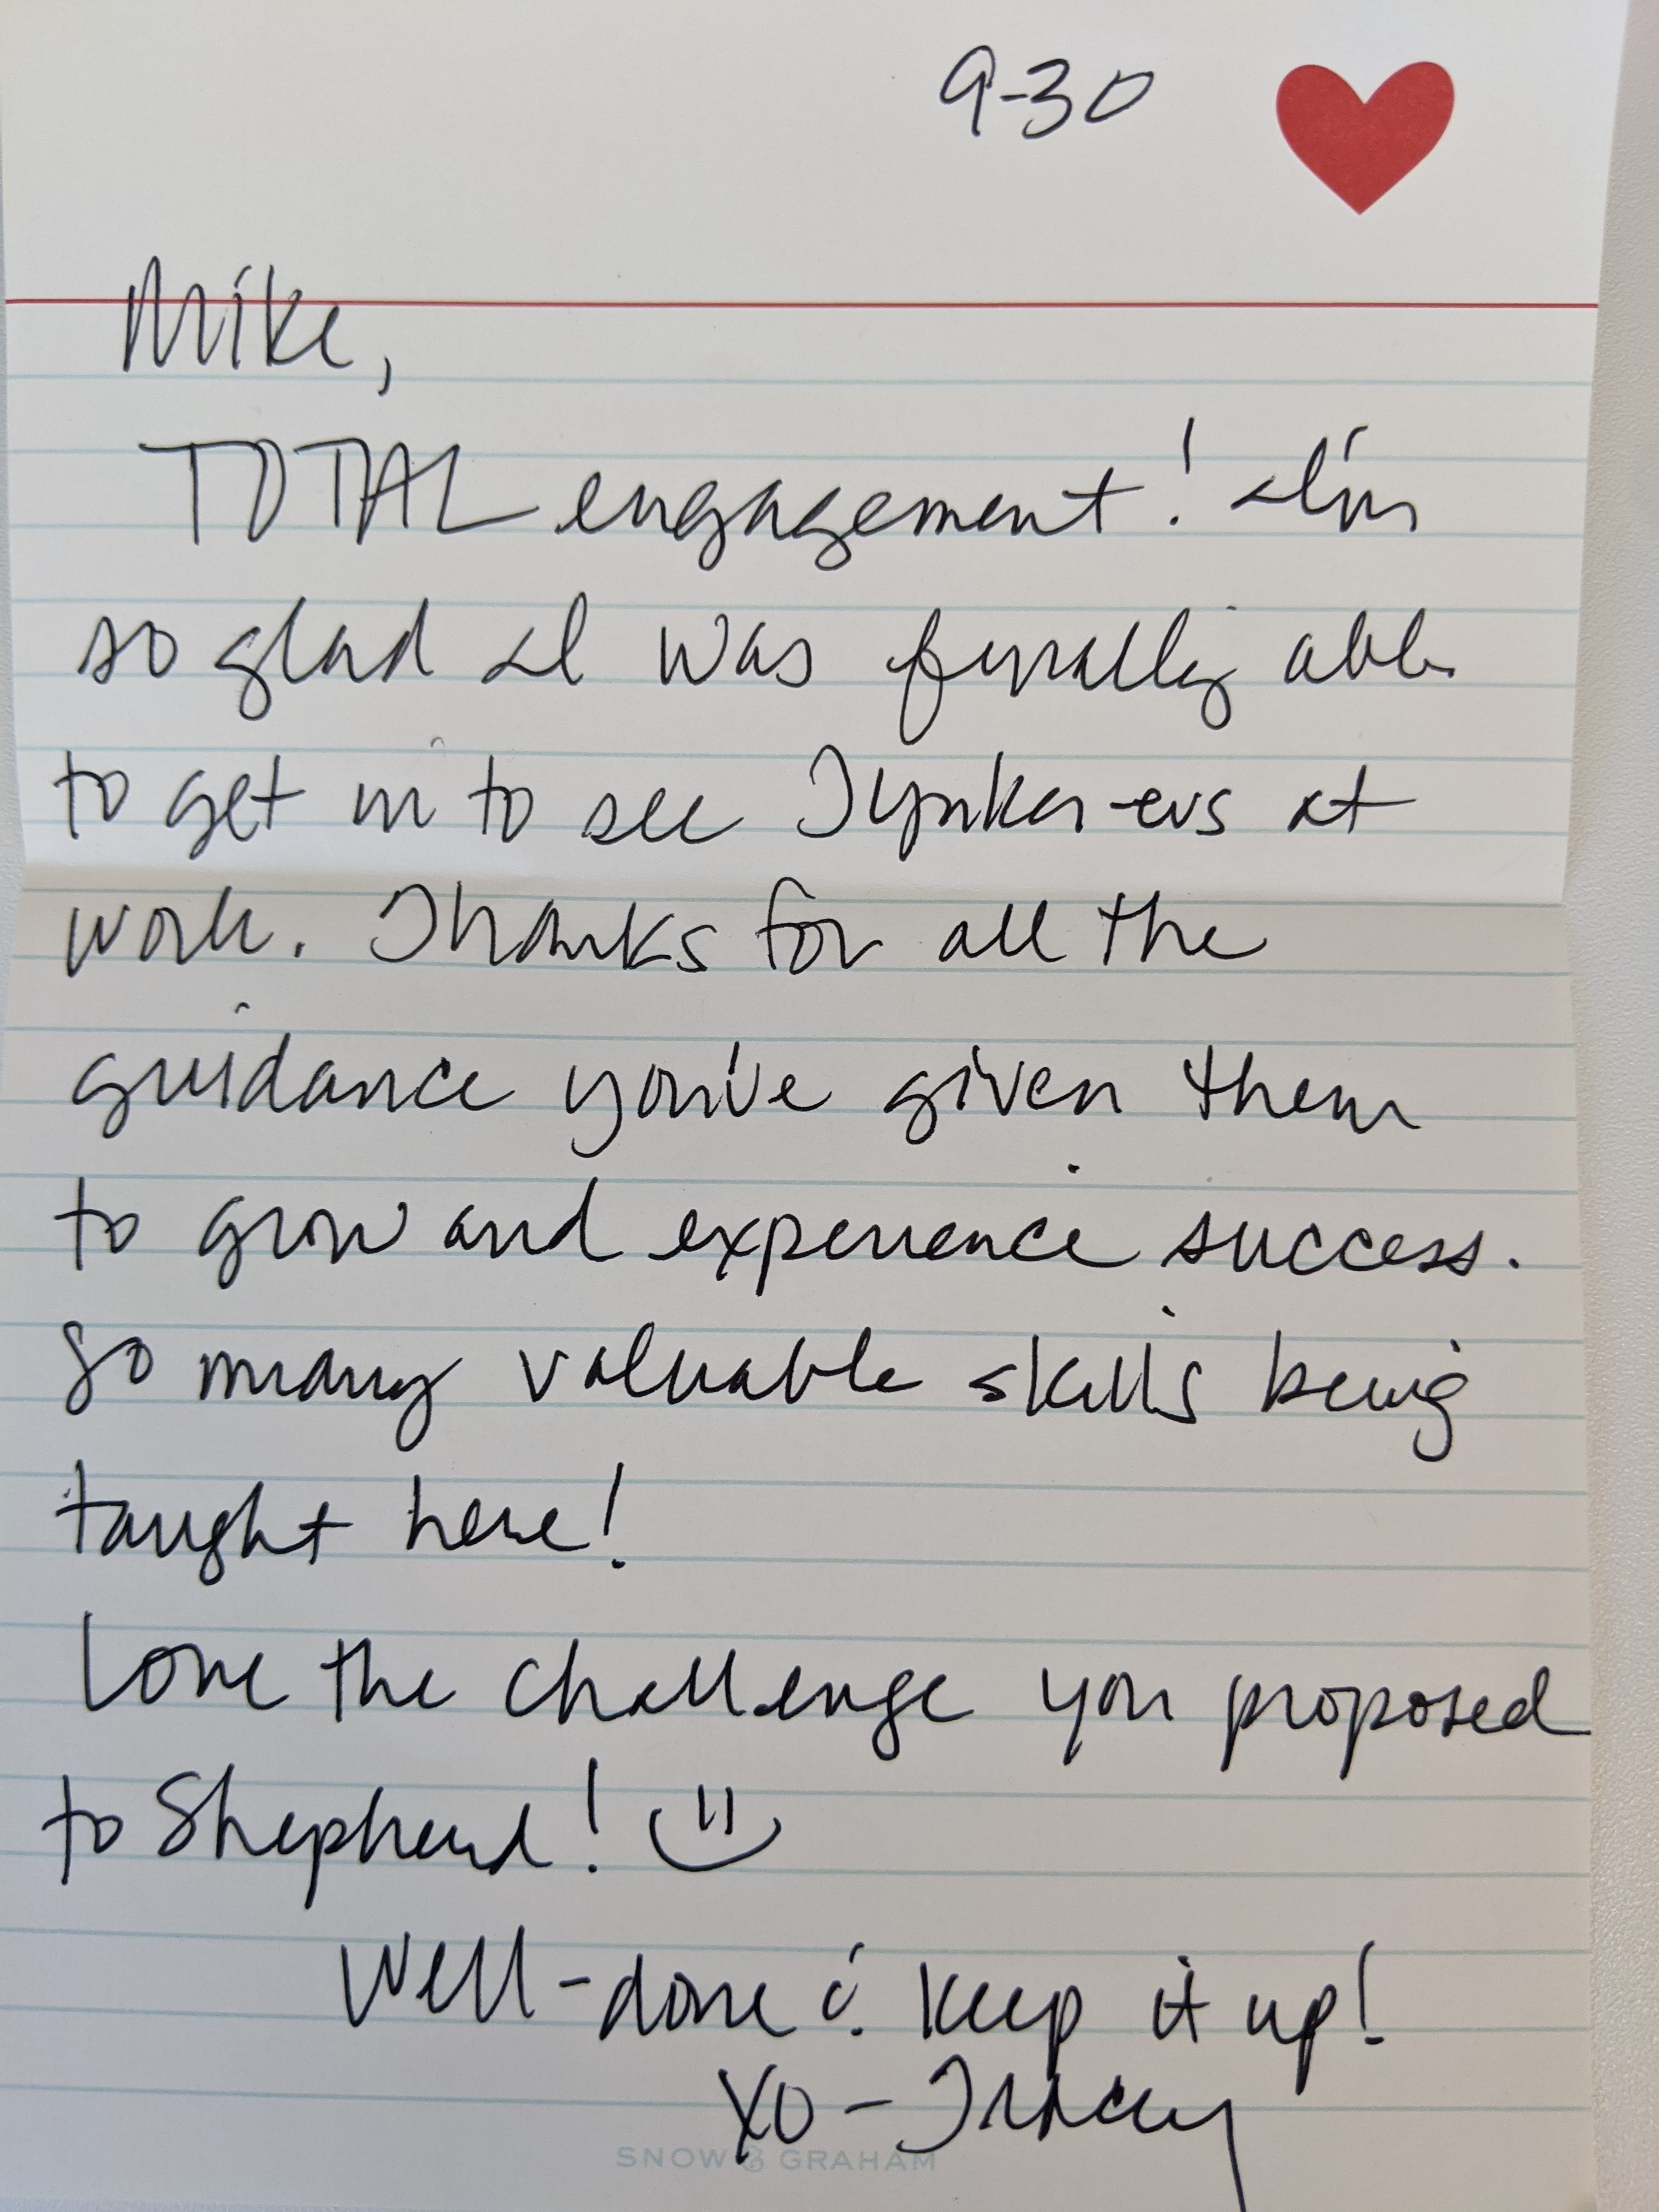 9-30
Mike,
TOTAL engagement! I'm
so glad I was finally able
to get in to see Tynker-ers at
work. Thanks for all the
guidance you've given them
to grow and experience success.
So many valuable skills being
taught here!
Love the challenge you proposed
to Shepherd!
Well-done & keep it up!
XO - Tracey
SNOW & GRAHAM